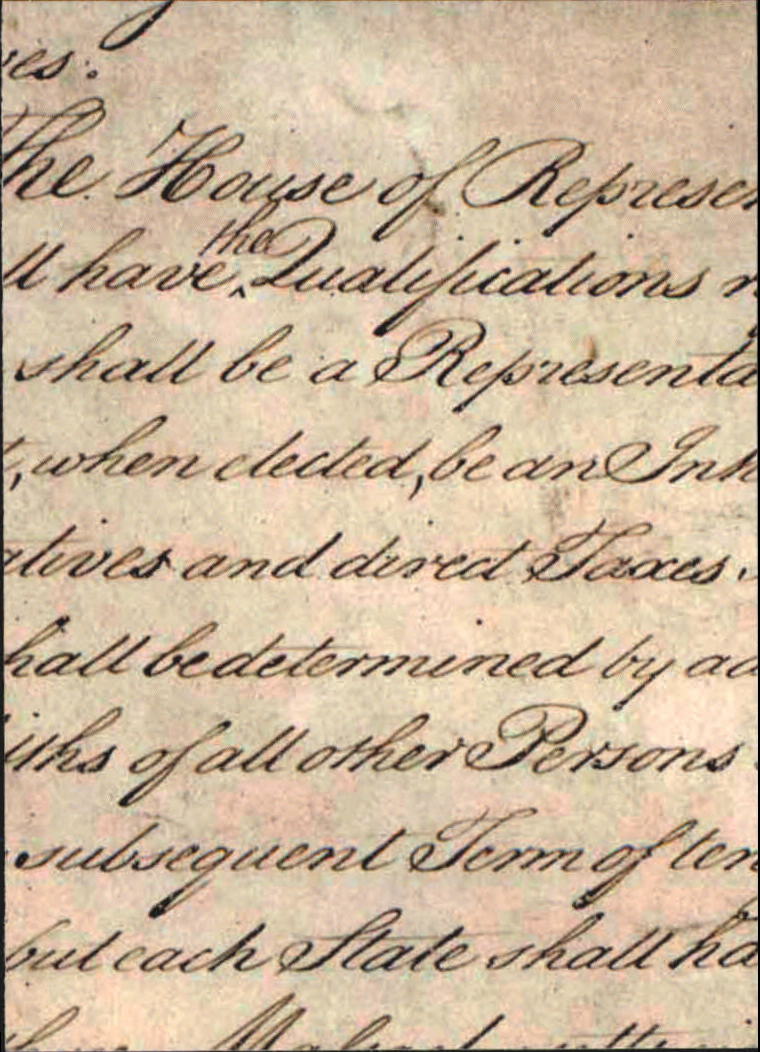 es.
The House of Represen
ll have the Qualifications r
shall be a Representa
t, when elected, be an Inh
atives and direct Taxes
hall be determined by ac
ifths of all other Persons
subsequent Term of ten
but each State shall ha